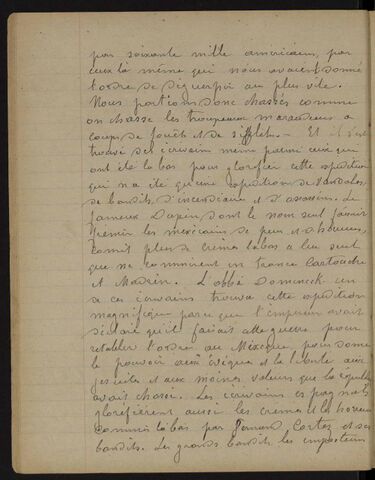 par soixante mille américains, par
ceux là même qui nous avaient donné
l'ordre de déguerpir au plus vite.
Nous partions donc chassés comme
on chasse les troupeaux maraudeurs a
coups de fouets et de sifflets. – Et il s'est
trouvé des écrivains meme parmi ceux qui
ont été labas pour glorifier cette expédition
qui n'a été qu'une expédition de Vandales
de bandits, d'incendiaire et d'assassins. Le
fameux Dupin dont le nom seul faisait
fremir les mexicains de peur et d'horreur,
comit plus de crimes labas a lui seul
que ne commirent en france Cartouche
et Mandrin. L'abbé Domeneck un
de ces écrivains trouva cette expédition
magnifique parce que l'empereur avait
déclaré qu'il faisait cette guerre pour
retablir l'ordre au Mexique pour donner
le pouvoir aux évêques et la liberte aux
jesuites et aux moines voleurs que la république
avait chassé. Les écrivains espagnols
glorifièrent aussi les crimes et les horreurs
commis labas par Fernand Cortez et ses
bandits. Les grands bandits les imposteurs